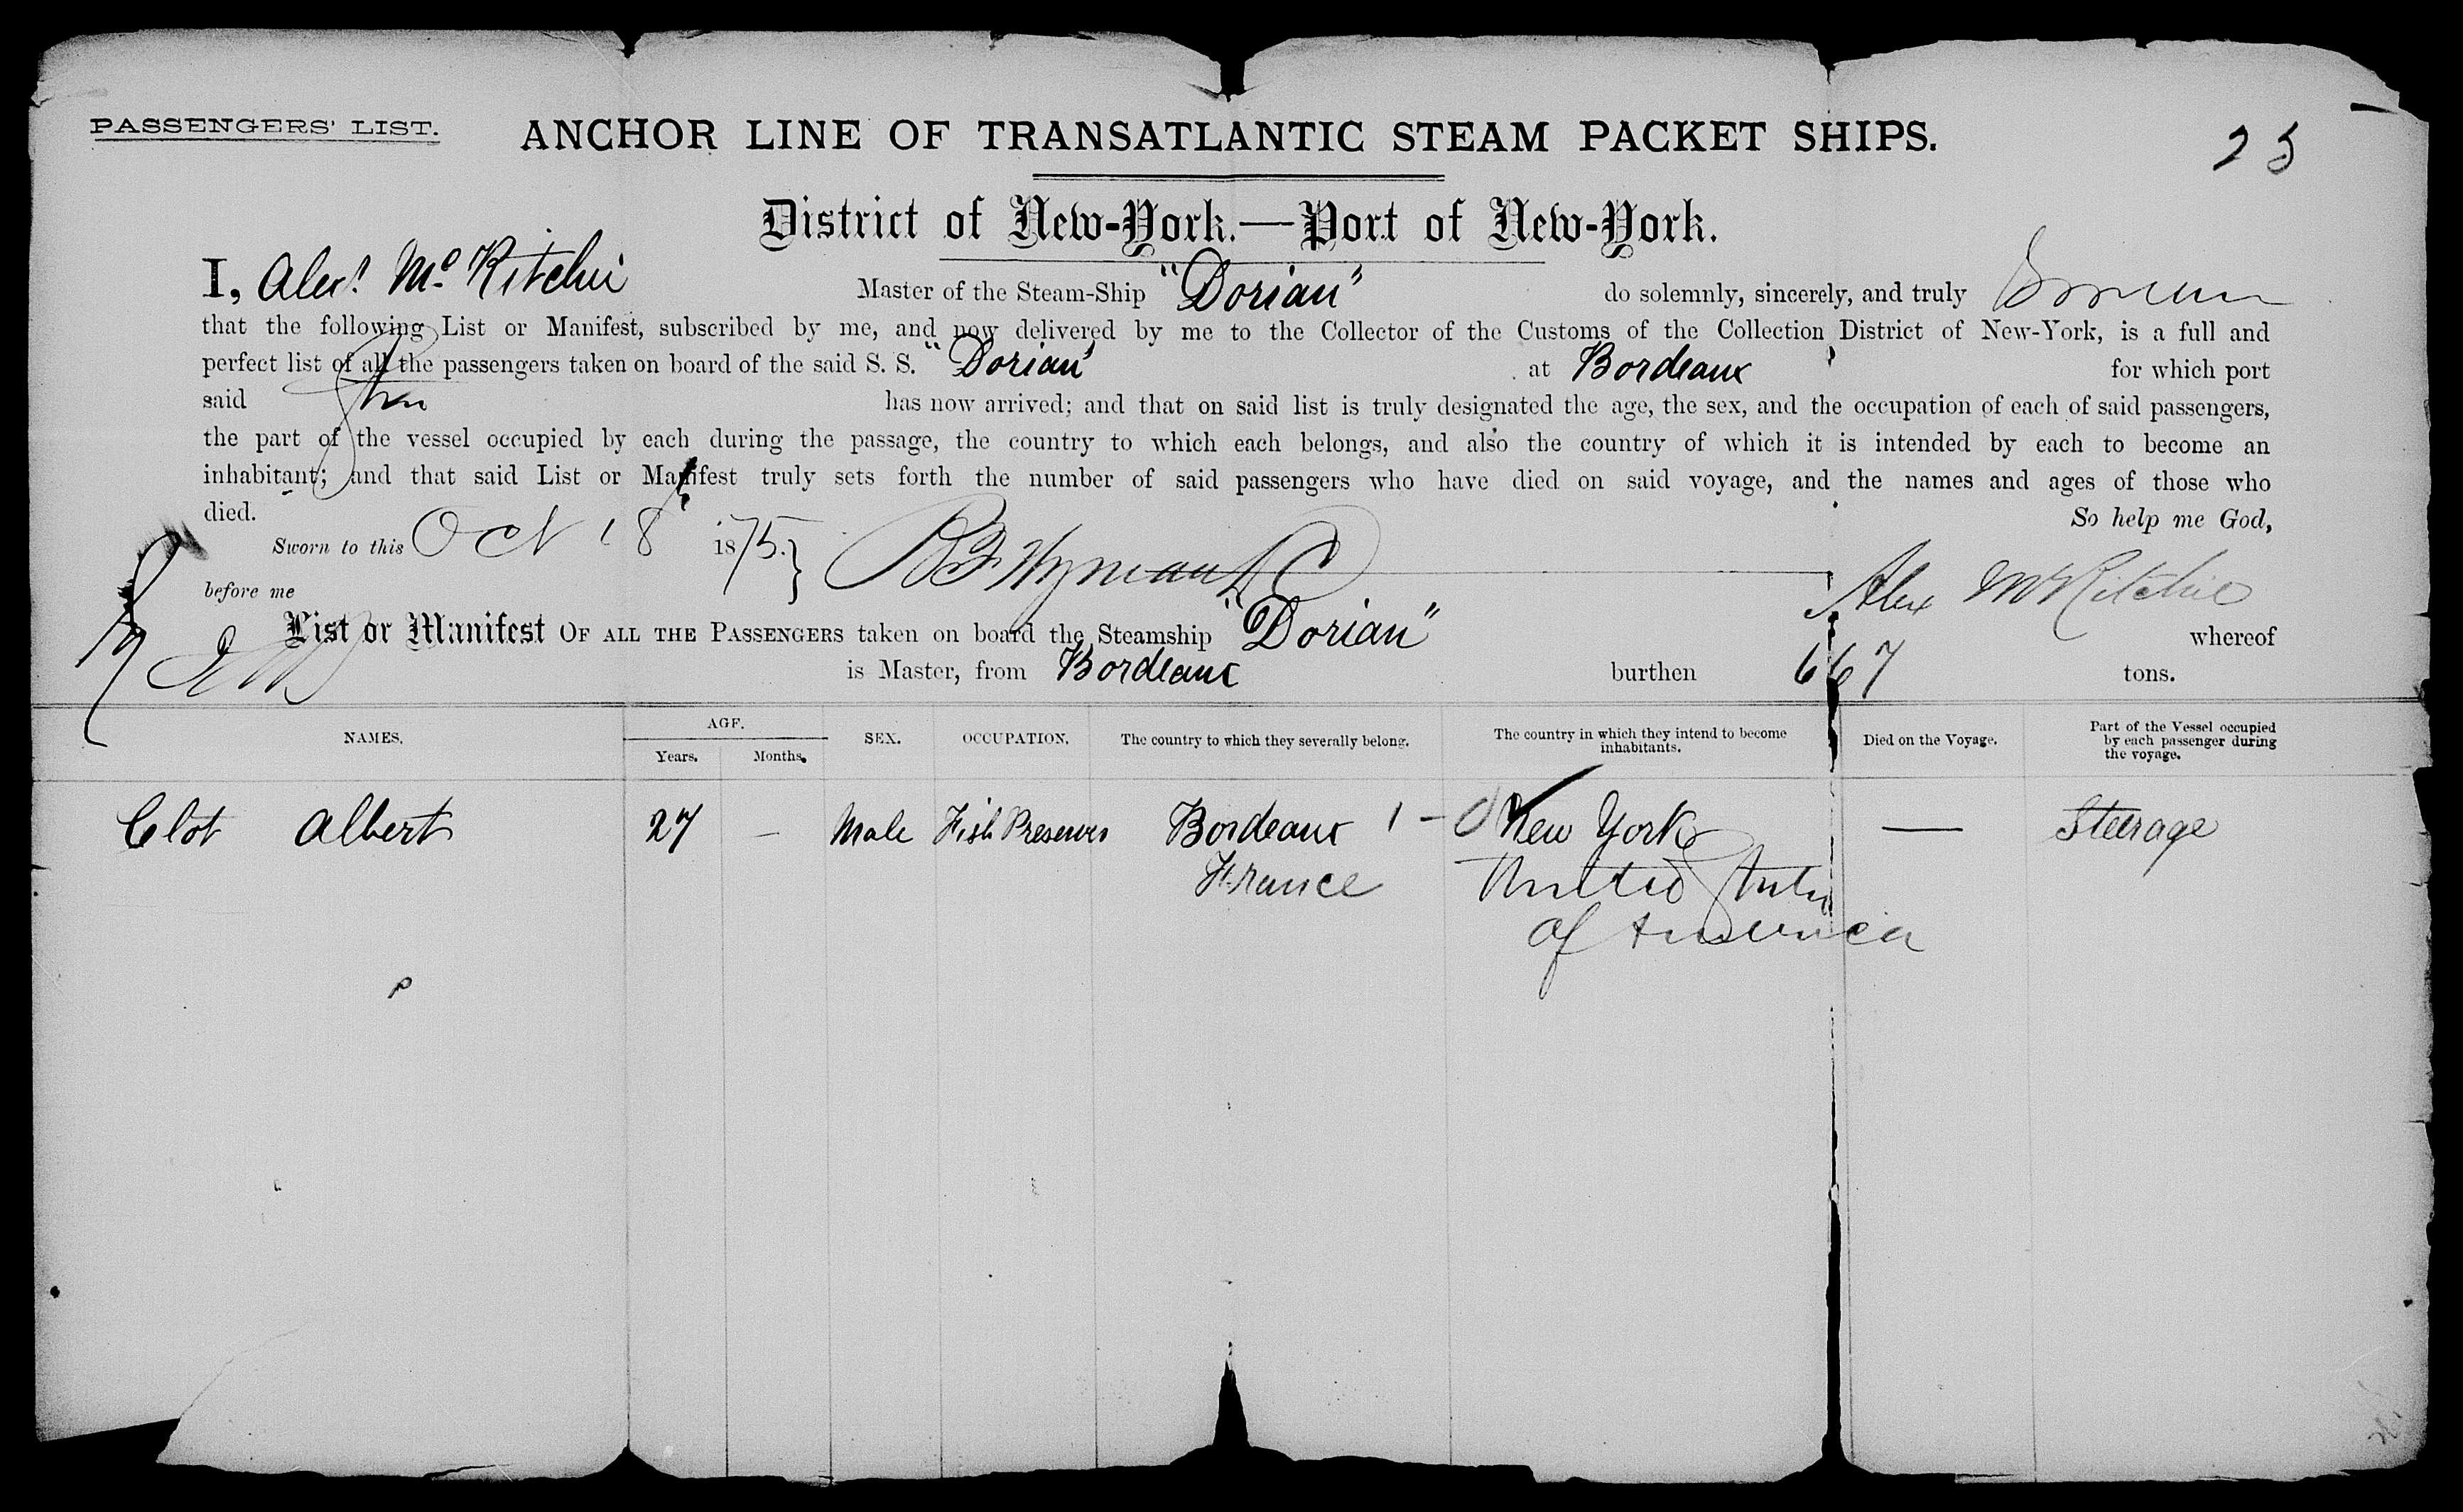 PASSENGERS' LIST.
ANCHOR LINE OF TRANSATLANTIC STEAM PACKET SHIPS.
25
District of New-York.—Port of New-York.
I, Alexr. Mc Ritchie Master of the Steam-Ship "Dorian" do solemnly, sincerely, and truly
that the following List or Manifest, subscribed by me, and now delivered by me to the Collector of the Customs of the Collection District of New-York, is a full and
perfect list of all the passengers taken on board of the said S. S. "Dorian" at Bordeaux for which port
said has now arrived; and that on said list is truly designated the age, the sex, and the occupation of each of said passengers,
the part of the vessel occupied by each during the passage, the country to which each belongs, and also the country of which it is intended by each to become an
inhabitant; and that said List or Manifest truly sets forth the number of said passengers who have died on said voyage, and the names and ages of those who
died. So help me God,
Sworn to this Oct 18 1875.
before me Alex McRitchie
List or Manifest OF ALL THE PASSENGERS taken on board the Steamship "Dorian" whereof
is Master, from Bordeaux burthen 667 tons.
NAMES. AGE. Years. Months. SEX. OCCUPATION. The country to which they severally belong. The country in which they intend to become inhabitants. Died on the Voyage. Part of the Vessel occupied by each passenger during the voyage.
Clot Albert 27 — Male Fish Preserver Bordeaux 1 - 0 New York — Steerage
France United States
of America